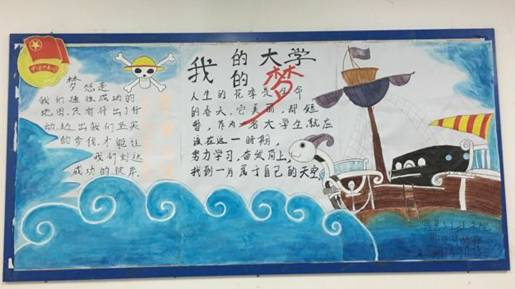 我的大学
我的梦
梦想是
我们通往成功的
地图,只有付出了行
动,迈出我们坚实
的步伐,才能让
我们到达
成功的彼岸。
人生的花季是生命
的春天,它美丽,却短
暂,作为一名大学生就应
该在这一时期,
努力学习,奋发向上,
找到一片属于自己的天空。